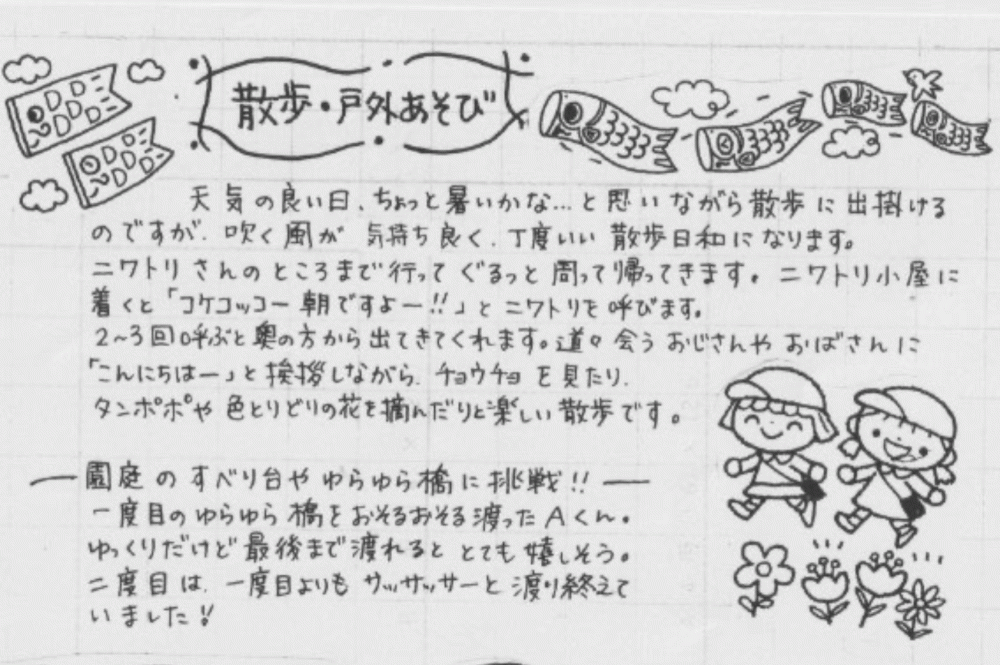 散歩・戸外あそび
天気の良い日、ちょっと暑いかな…と思いながら散歩に出掛ける
のですが、吹く風が気持ち良く、丁度いい散歩日和になります。
ニワトリさんのところまで行ってぐるっと周って帰ってきます。ニワトリ小屋に
着くと「コケコッコー朝ですよー!!」とニワトリを呼びます。
2〜3回呼ぶと奥の方から出てきてくれます。道々会うおじさんやおばさんに
「こんにちはー」と挨拶しながら、チョウチョを見たり、
タンポポや色とりどりの花を摘んだりと楽しい散歩です。
―園庭のすべり台やゆらゆら橋に挑戦!!―
一度目のゆらゆら橋をおそるおそる渡ったAくん。
ゆっくりだけど最後まで渡れるととても嬉しそう。
二度目は、一度目よりもサッサッサーと渡り終えて
いました!